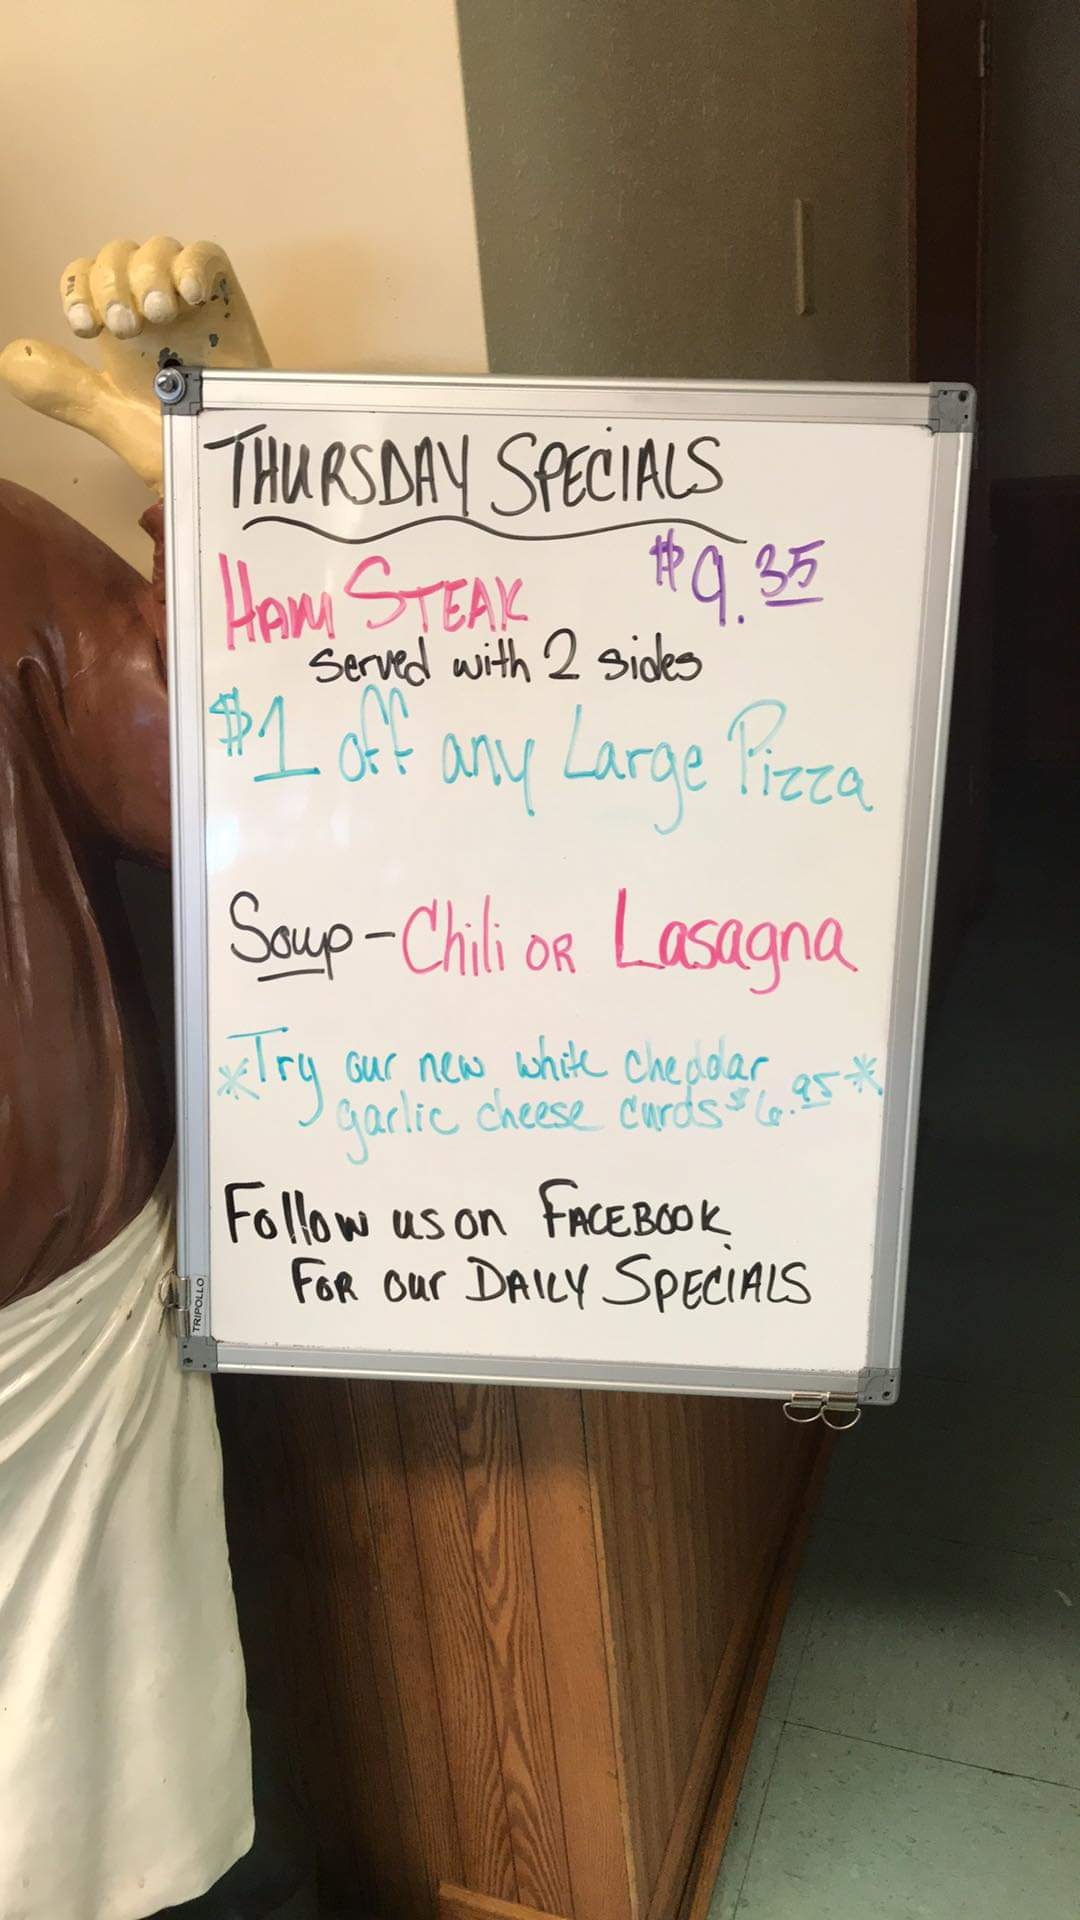 THURSDAY SPECIALS
HAM STEAK $9.35
served with 2 sides
$1 off any Large Pizza
Soup - Chili OR Lasagna
*Try our new white cheddar
garlic cheese curds $6.95*
Follow us on FACEBOOK
FOR our DAILY SPECIALS
TRIPOLLO